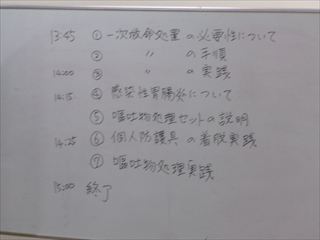 13:45 ① 一次救命処置の必要性について
② 〃 の手順
14:00 ③ 〃 の実践
14:15 ④ 感染性胃腸炎について
⑤ 嘔吐物処理セットの説明
14:25 ⑥ 個人防護具の着脱実践
⑦ 嘔吐物処理実践
15:00 終了